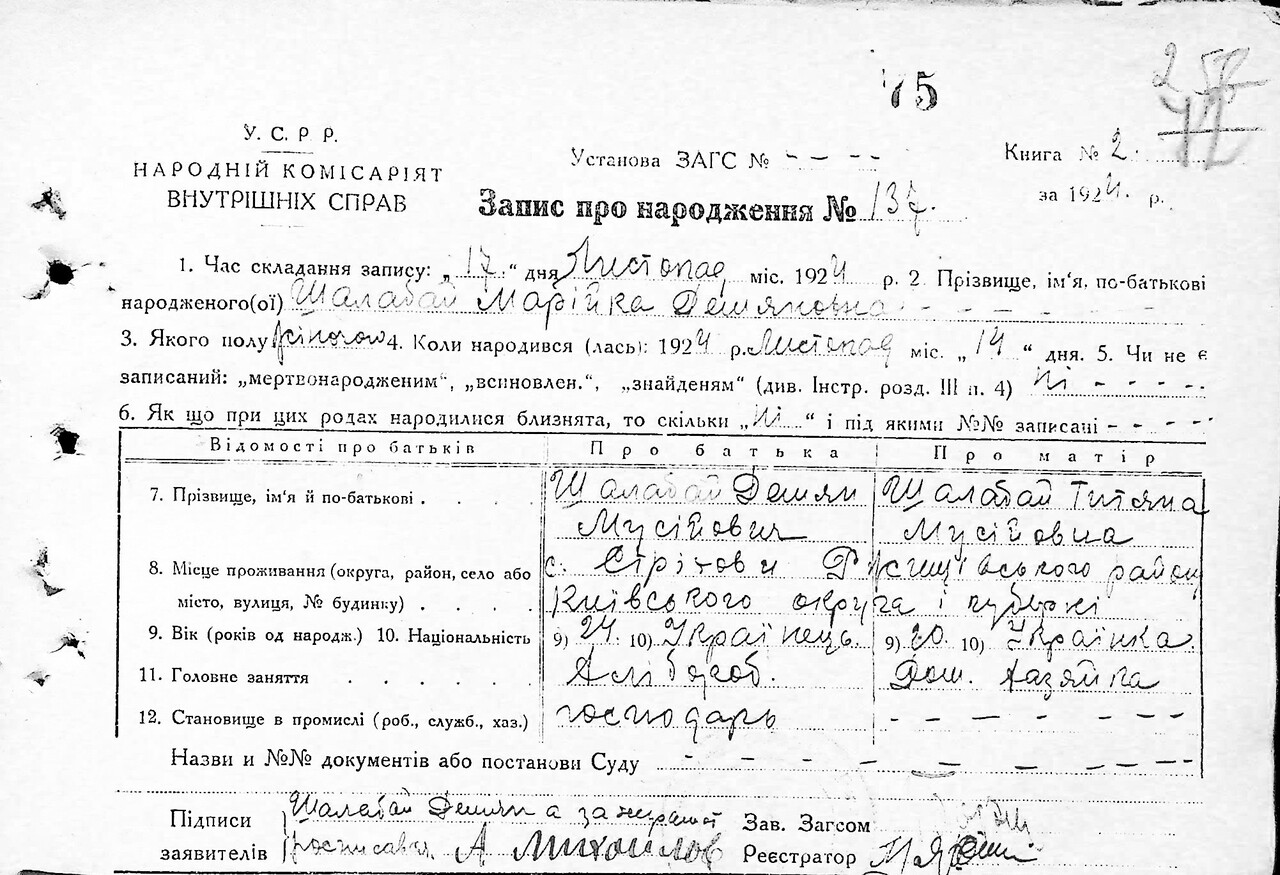 75
257
72
У. С. Р. Р.
НАРОДНІЙ КОМІСАРІЯТ
ВНУТРІШНІХ СПРАВ
Установа ЗАГС № - - - -
Книга № 2.
за 1924. р.
Запис про народження № 137.
1. Час складання запису: „17“ дня Листопад міс. 1924 р. 2. Прізвище, ім'я, по-батькові
народженого(ої) Шалабай Марійка Демяновна - - - - -
3. Якого полу жіночого 4. Коли народився (лась): 1924 р. Листопад міс. „14“ дня. 5. Чи не є
записаний: „мертвонародженим“, „всиновлен.“, „знайденям“ (див. Інстр. розд. III п. 4) Ні - - - - -
6. Як що при цих родах народилися близнята, то скільки „Ні“ і під якими №№ записані - - - - -
Відомості про батьків Про батька Про матір
7. Прізвище, ім'я й по-батькові . . . . Шалабай Демян Шалабай Титяна
Мусійович Мусійовна
8. Місце проживання (округа, район, село або с. Стрітовки Ржищівського району
місто, вулиця, № будинку) . . . . Київського округа і губерні
9. Вік (років од народж.) 10. Національність 9) 24. 10) Українець 9) 20. 10) Українка.
11. Головне заняття . . . . . . Хлібороб. Дом. хазяйка
12. Становище в промислі (роб., служб., хаз.) господарь - - - - - - -
Назви и №№ документів або постанови Суду - - - - - - - - -
Підписи Шалабай Демян а за Зав. Загсом
заявителів росписався А Михайлов Реєстратор